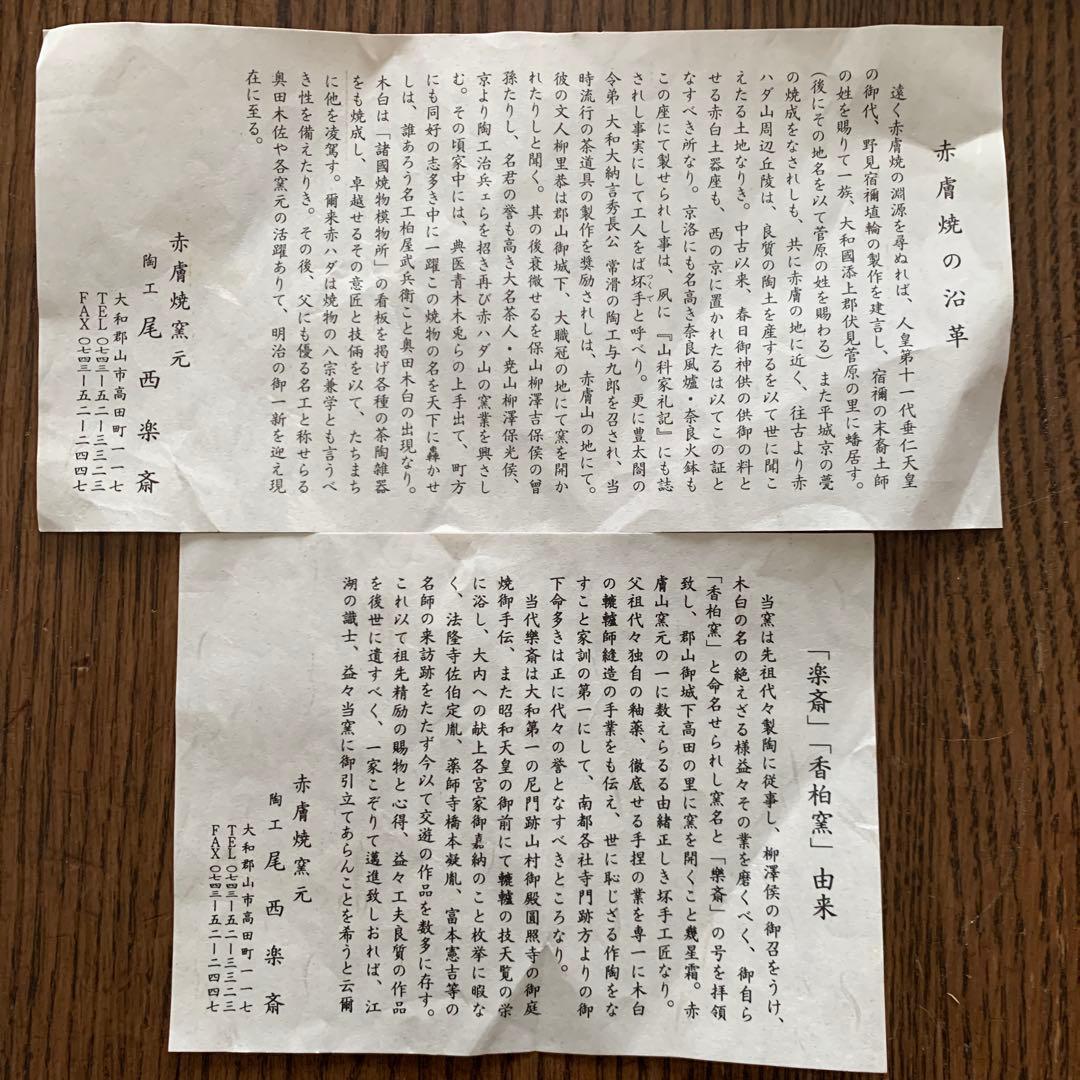 赤膚焼の沿革
遠く赤膚焼の淵源を尋ぬれば、人皇第十一代垂仁天皇
の御代、野見宿禰埴輪の製作を建言し、宿禰の末裔土師
の姓を賜りて一族、大和國添上郡伏見菅原の里に蟠居す。
(後にその地名を以て菅原の姓を賜わる)また平城京の甍
の焼成をなされしも、共に赤膚の地に近く、往古より赤
ハダ山周辺丘陵は、良質の陶土を産するを以て世に聞こ
えたる土地なりき。中古以来、春日御神供の供御の料と
せる赤白土器座も、西の京に置かれたるは以てこの証と
なすべき所なり。京洛にも名高き奈良風爐・奈良火鉢も
この座にて製せられし事は、夙に『山科家礼記』にも誌
されし事実にして工人をば坏手と呼べり。更に豊太閤の
つくで
令弟 大和大納言秀長公 常滑の陶工与九郎を召され、当
時流行の茶道具の製作を奨励されしは、赤膚山の地にて。
彼の文人柳里恭は郡山御城下、大職冠の地にて窯を開か
れたりしと聞く。其の後衰微せるを保山柳澤吉保侯の曾
孫たりし、名君の誉も高き大名茶人・尭山柳澤保光侯、
京より陶工治兵ェらを招き再び赤ハダ山の窯業を興さし
む。その頃家中には、典医青木木兎らの上手出て、町方
にも同好の志多き中に一躍この焼物の名を天下に轟かせ
しは、誰あろう名工柏屋武兵衛こと奥田木白の出現なり。
木白は「諸國焼物模物所」の看板を掲げ各種の茶陶雑器
をも焼成し、卓越せるその意匠と技倆を以て、たちまち
に他を凌駕す。爾来赤ハダは焼物の八宗兼学とも言うべ
き性を備えたりき。その後、父にも優る名工と称せらる
奥田木佐や各窯元の活躍ありて、明治の御一新を迎え現
在に至る。
赤膚焼窯元
陶工 尾西楽斎
大和郡山市高田町一一七
TEL〇七四三ー五二ー三三二三
FAX〇七四三ー五二ー二四四七
「楽斎」「香柏窯」由来
当窯は先祖代々製陶に従事し、柳澤侯の御召をうけ、
木白の名の絶えざる様益々その業を磨くべく、御自ら
「香柏窯」と命名せられし窯名と「樂斎」の号を拝領
致し、郡山御城下高田の里に窯を開くこと幾星霜。赤
膚山窯元の一に数えらるる由緒正しき坏手工匠なり。
父祖代々独自の釉薬、徹底せる手捏の業を専一に木白
の轆轤師縫造の手業をも伝え、世に恥じざる作陶をな
すこと家訓の第一にして、南都各社寺門跡方よりの御
下命多きは正に代々の誉となすべきところなり。
当代樂斎は大和第一の尼門跡山村御殿圓照寺の御庭
焼御手伝、また昭和天皇の御前にて轆轤の技天覧の栄
に浴し、大内への献上各宮家御嘉納のこと枚挙に暇な
く、法隆寺佐伯定胤、薬師寺橋本凝胤、富本憲吉等の
名師の来訪跡をたたず今以て交遊の作品を数多に存す。
これ以て祖先精励の賜物と心得、益々工夫良質の作品
を後世に遺すべく、一家こぞりて邁進致しおれば、江
湖の識士、益々当窯に御引立てあらんことを希うと云爾
赤膚焼窯元
陶工 尾西楽斎
大和郡山市高田町一一七
TEL〇七四三ー五二ー三三二三
FAX〇七四三ー五二ー二四四七